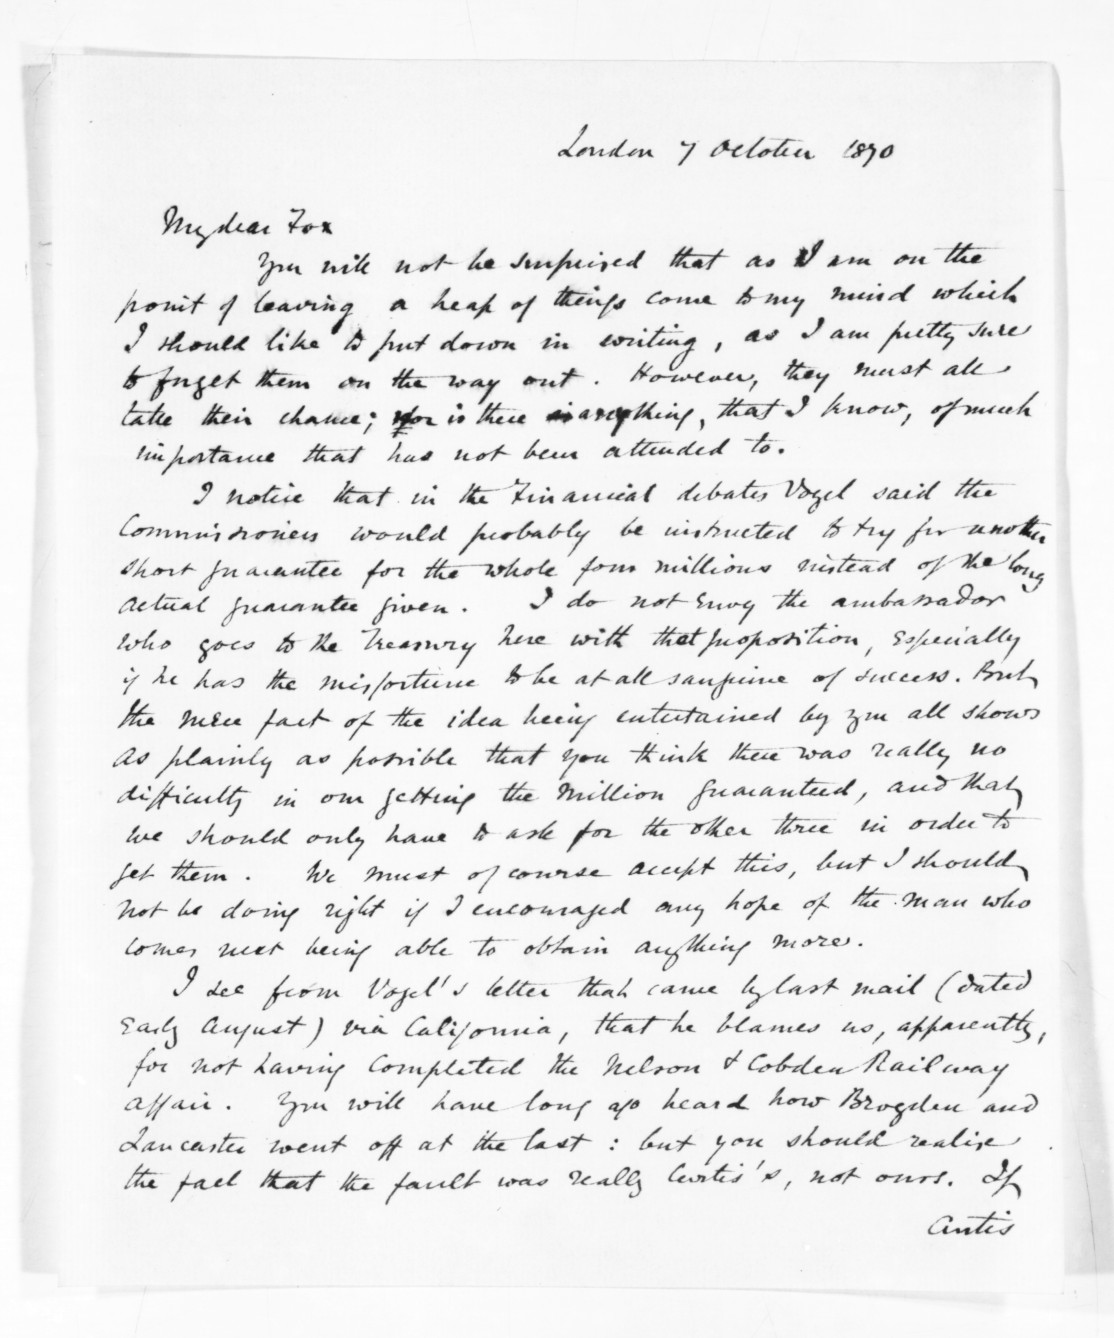 London 7 October 1870
My dear Fox
You will not be surprised that as I am on the
point of leaving a heap of things come to my mind which
I should like to put down in writing, as I am pretty sure
to forget them on the way out. However, they must all
take their chance; nor is there anything, that I know, of much
importance that has not been attended to.
I notice that in the Financial debates Vogel said the
Commissioners would probably be instructed to try for another
short guarantee for the whole four millions instead of the long
actual guarantee given. I do not envy the ambassador
who goes to the Treasury here with that proposition, especially
if he has the misfortune to be at all sanguine of success. But
the mere fact of the idea being entertained by you all shows
as plainly as possible that you think there was really no
difficulty in our getting the million guaranteed, and that
we should only have to ask for the other three in order to
get them. We must of course accept this, but I should
not be doing right if I encouraged any hope of the man who
comes next being able to obtain anything more.
I see from Vogel's letter that came by last mail (dated
early August) via California, that he blames us, apparently,
for not having completed the Nelson & Cobden Railway
affair. You will have long ago heard how Brogden and
Lancaster went off at the last: but you should realise
the fact that the fault was really Curtis's, not ours. If
Curtis